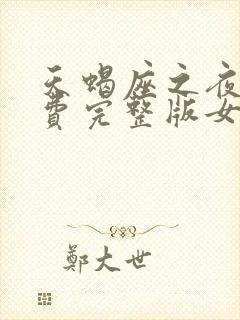 天蝎座之夜
費完整版女
鄭大世